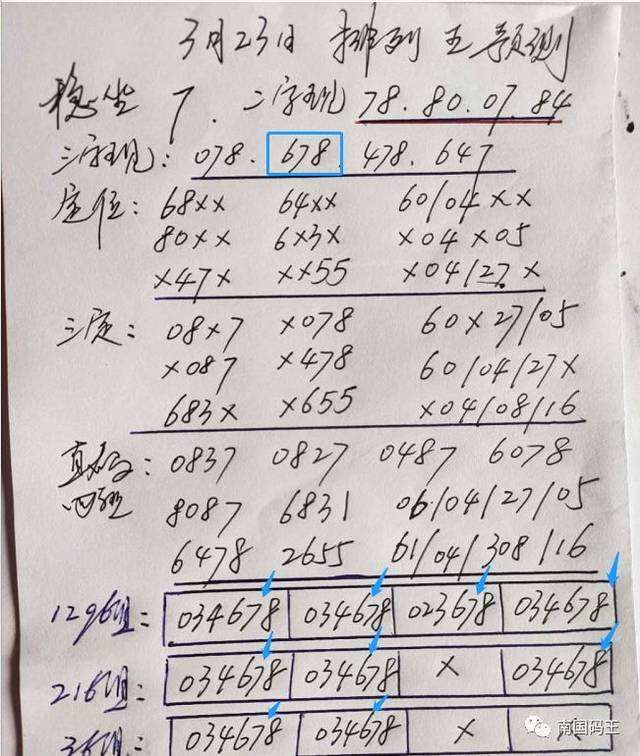 3月23日 排列五预测
稳坐 7. 二字现 78.80.07.84
三字现: 078. 678 478. 647
定位: 68×× 64×× 60/04××
80×× 6×3× ×04×05
×47× ××55 ×04/27×
三定: 08×7 ×078 60×27/05
×087 ×478 60/04/27×
683× ×655 ×04/08/16
直码: 0837 0827 0487 6078
8087 6831 06/04/27/05
6478 2655 61/04/308/16
1296组: 034678 034678 023678 034678
216组: 034678 034678 × 034678
36组: 034678 034678 × ×
南国码王